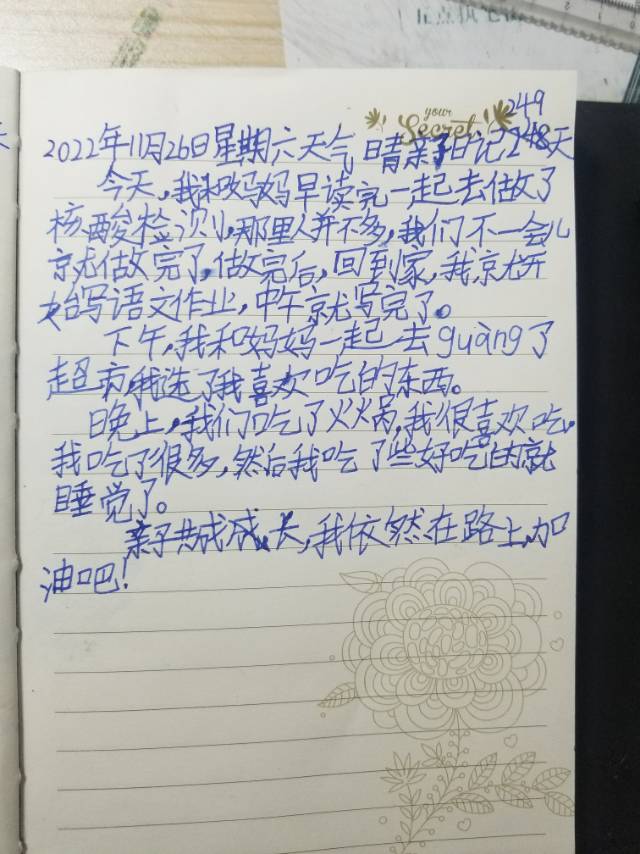 your
Secret
249
2022年11月26日星期六天气 晴亲子日记248天
今天,我和妈妈早读完一起去做了
核酸检测,那里人并不多,我们不一会儿
就做完了,做完后,回到家,我就开
始写语文作业,中午就写完了。
下午,我和妈妈一起去guàng了
超市,我选了我喜欢吃的东西。
晚上,我们吃了火火锅,我很喜欢吃,
我吃了很多,然后我吃了些好吃的就
睡觉了。
亲子共成成长,我依然在路上,加
油吧!